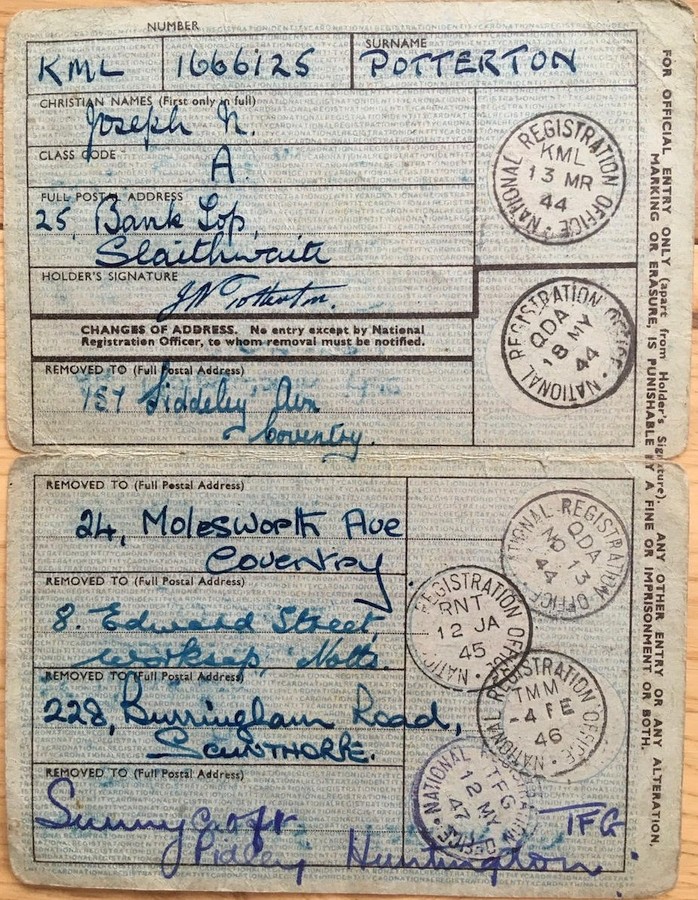 NUMBER
SURNAME
KML 1666125 POTTERTON
CHRISTIAN NAMES (First only in full)
Joseph N.
CLASS CODE
A
FULL POSTAL ADDRESS
25, Bank Top,
Slaithwaite
HOLDER'S SIGNATURE
J N Potterton.
CHANGES OF ADDRESS. No entry except by National
Registration Officer, to whom removal must be notified.
REMOVED TO (Full Postal Address)
Siddeley Ave
Coventry.
NATIONAL REGISTRATION OFFICE
KML
13 MR
44
NATIONAL REGISTRATION OFFICE
QDA
18 MY
44
REMOVED TO (Full Postal Address)
24, Molesworth Ave
Coventry
REMOVED TO (Full Postal Address)
8. Edward Street,
Worksop, Notts.
REMOVED TO (Full Postal Address)
228, Burringham Road,
SCUNTHORPE.
REMOVED TO (Full Postal Address)
Sunnycroft TFG
Pidley Huntingdon.
NATIONAL REGISTRATION OFFICE
QDA
NO 13
44
NATIONAL REGISTRATION OFFICE
RNT
12 JA
45
NATIONAL REGISTRATION OFFICE
TMM
-4 FE
46
NATIONAL REGISTRATION OFFICE
TFG
12 MY
47
FOR OFFICIAL ENTRY ONLY (apart from Holder's Signature). ANY OTHER ENTRY OR ANY ALTERATION,
MARKING OR ERASURE, IS PUNISHABLE BY A FINE OR IMPRISONMENT OR BOTH.